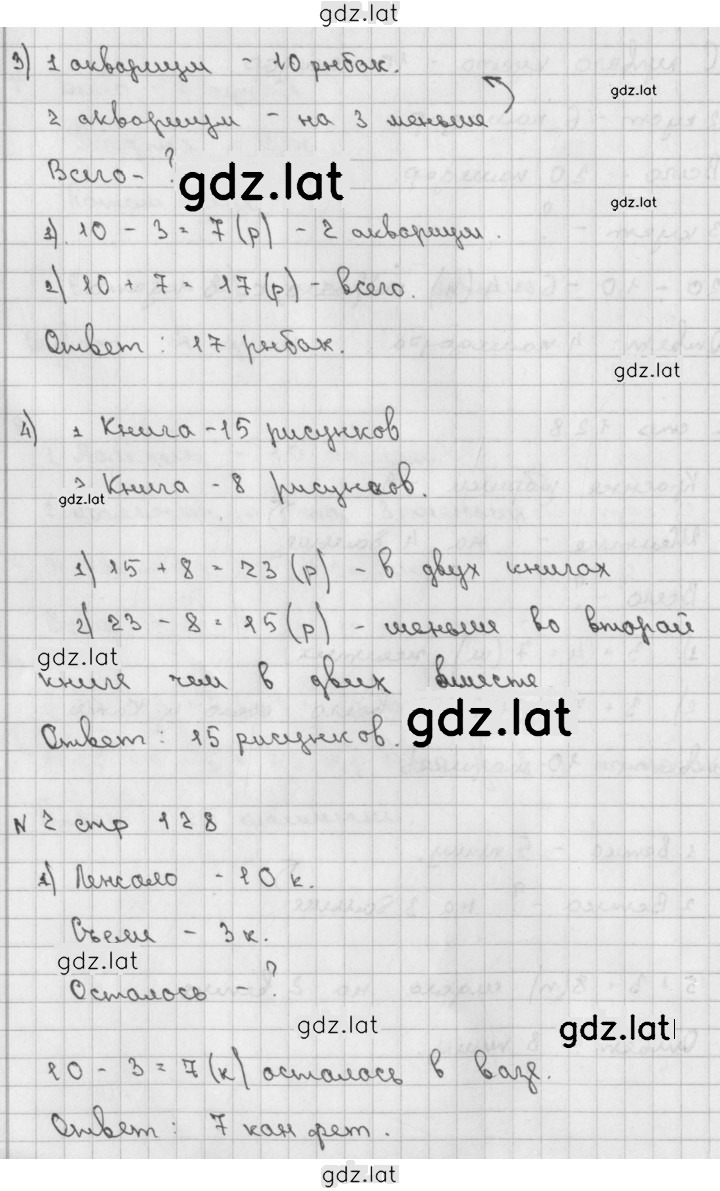 gdz.lat
3) 1 аквариум - 10 рыбок.
gdz.lat
2 аквариум - на 3 меньше
Всего - ?
gdz.lat
gdz.lat
1) 10 - 3 = 7 (р) - 2 аквариум.
2) 10 + 7 = 17 (р) - всего.
Ответ : 17 рыбок.
gdz.lat
4) 1 Книга - 15 рисунков
2 Книга - 8 рисунков.
gdz.lat
1) 15 + 8 = 23 (р) - в двух книгах
2) 23 - 8 = 15 (р) - меньше во второй
gdz.lat
книге чем в двух вместе
gdz.lat
Ответ : 15 рисунков.
N 2 стр 128
1) Лежало - 10 к.
Съели - 3 к.
gdz.lat
Осталось - ?
gdz.lat
gdz.lat
10 - 3 = 7 (к) осталось в вазе.
Ответ : 7 конфет.
gdz.lat